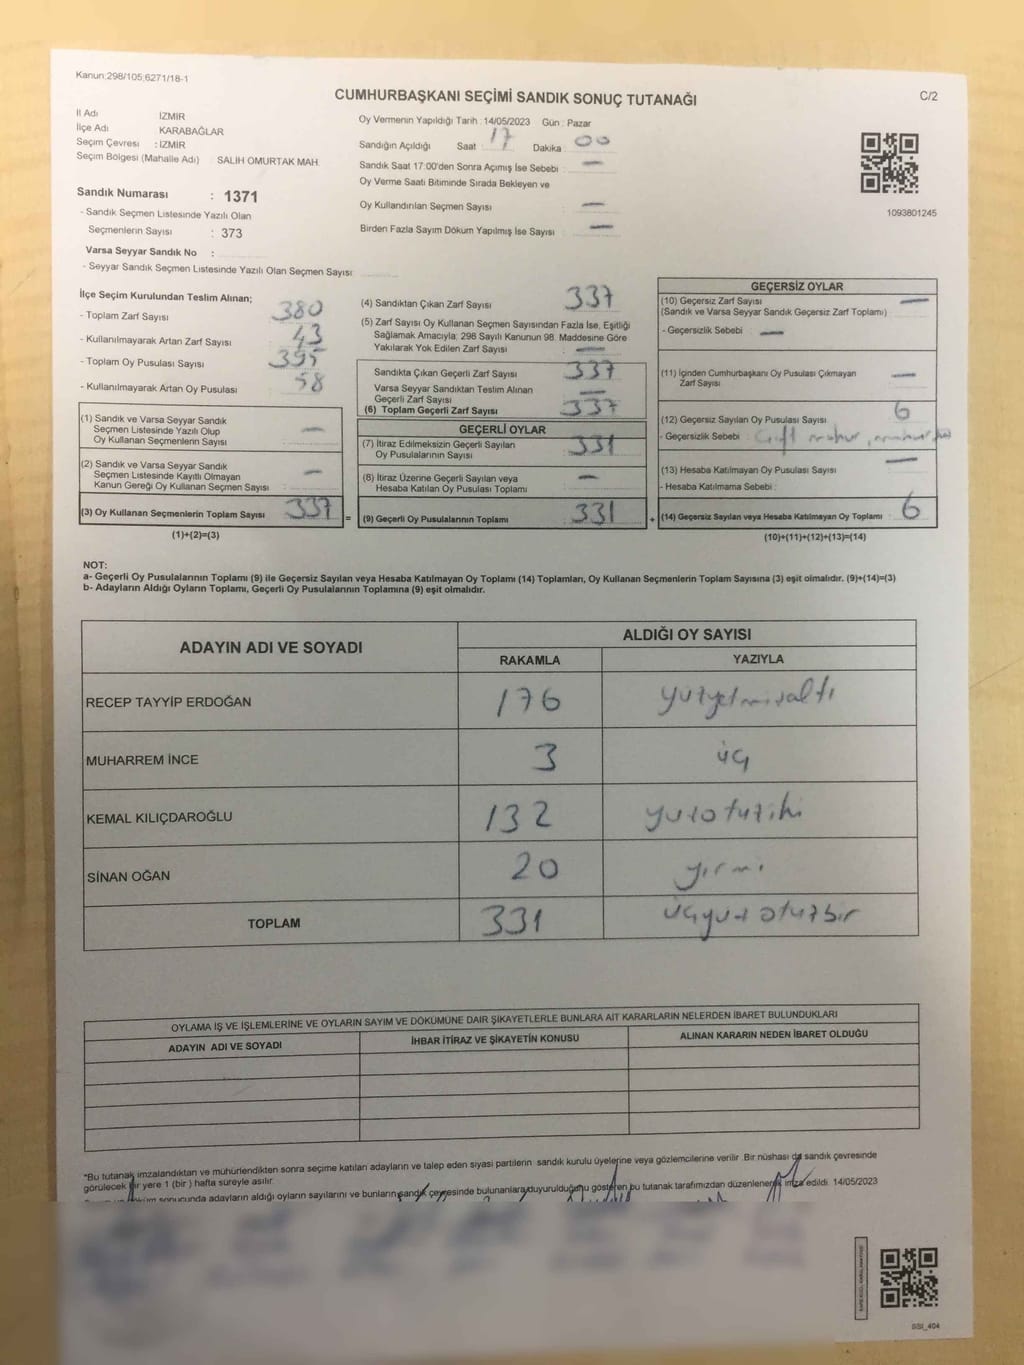 Kanun;298/105;6271/18-1
CUMHURBAŞKANI SEÇİMİ SANDIK SONUÇ TUTANAĞI
C/2
İl Adı İZMİR
İlçe Adı KARABAĞLAR
Seçim Çevresi : İZMİR
Seçim Bölgesi (Mahalle Adı) SALİH OMURTAK MAH.
Oy Vermenin Yapıldığı Tarih : 14/05/2023 Gün : Pazar
Sandığın Açıldığı Saat 17 Dakika 00
Sandık Saat 17:00'den Sonra Açımış İse Sebebi : —
Oy Verme Saati Bitiminde Sırada Bekleyen ve
Oy Kullandırılan Seçmen Sayısı : —
Birden Fazla Sayım Döküm Yapılmış İse Sayısı : —
1093801245
Sandık Numarası : 1371
- Sandık Seçmen Listesinde Yazılı Olan
Seçmenlerin Sayısı : 373
Varsa Seyyar Sandık No :
- Seyyar Sandık Seçmen Listesinde Yazılı Olan Seçmen Sayısı:
İlçe Seçim Kurulundan Teslim Alınan;
- Toplam Zarf Sayısı 380
- Kullanılmayarak Artan Zarf Sayısı 43
- Toplam Oy Pusulası Sayısı 395
- Kullanılmayarak Artan Oy Pusulası 58
(1) Sandık ve Varsa Seyyar Sandık
Seçmen Listesinde Yazılı Olup
Oy Kullanan Seçmenlerin Sayısı —
(2) Sandık ve Varsa Seyyar Sandık
Seçmen Listesinde Kayıtlı Olmayan
Kanun Gereği Oy Kullanan Seçmen Sayısı : —
(3) Oy Kullanan Seçmenlerin Toplam Sayısı 337 =
(1)+(2)=(3)
(4) Sandıktan Çıkan Zarf Sayısı 337
(5) Zarf Sayısı Oy Kullanan Seçmen Sayısından Fazla İse, Eşitliği
Sağlamak Amacıyla; 298 Sayılı Kanunun 98. Maddesine Göre
Yakılarak Yok Edilen Zarf Sayısı —
Sandıkta Çıkan Geçerli Zarf Sayısı 337
Varsa Seyyar Sandıktan Teslim Alınan
Geçerli Zarf Sayısı —
(6) Toplam Geçerli Zarf Sayısı 337
GEÇERLİ OYLAR
(7) İtiraz Edilmeksizin Geçerli Sayılan
Oy Pusulalarının Sayısı 331
(8) İtiraz Üzerine Geçerli Sayılan veya
Hesaba Katılan Oy Pusulası Toplamı —
(9) Geçerli Oy Pusulalarının Toplamı 331 +
GEÇERSİZ OYLAR
(10) Geçersiz Zarf Sayısı —
(Sandık ve Varsa Seyyar Sandık Geçersiz Zarf Toplamı)
- Geçersizlik Sebebi : —
(11) İçinden Cumhurbaşkanı Oy Pusulası Çıkmayan
Zarf Sayısı —
(12) Geçersiz Sayılan Oy Pusulası Sayısı 6
- Geçersizlik Sebebi : Çift mühür,
(13) Hesaba Katılmayan Oy Pusulası Sayısı —
- Hesaba Katılmama Sebebi :
(14) Geçersiz Sayılan veya Hesaba Katılmayan Oy Toplamı : 6
(10)+(11)+(12)+(13)=(14)
NOT:
a- Geçerli Oy Pusulalarının Toplamı (9) ile Geçersiz Sayılan veya Hesaba Katılmayan Oy Toplamı (14) Toplamları, Oy Kullanan Seçmenlerin Toplam Sayısına (3) eşit olmalıdır. (9)+(14)=(3)
b- Adayların Aldığı Oyların Toplamı, Geçerli Oy Pusulalarının Toplamına (9) eşit olmalıdır.
ADAYIN ADI VE SOYADI ALDIĞI OY SAYISI
RAKAMLA YAZIYLA
RECEP TAYYİP ERDOĞAN 176 yüzyetmişaltı
MUHARREM İNCE 3 üç
KEMAL KILIÇDAROĞLU 132 yüzotuziki
SİNAN OĞAN 20 yirmi
TOPLAM 331 üçyüz otuzbir
OYLAMA İŞ VE İŞLEMLERİNE VE OYLARIN SAYIM VE DÖKÜMÜNE DAİR ŞİKAYETLERLE BUNLARA AİT KARARLARIN NELERDEN İBARET BULUNDUKLARI
ADAYIN ADI VE SOYADI İHBAR İTİRAZ VE ŞİKAYETİN KONUSU ALINAN KARARIN NEDEN İBARET OLDUĞU
*Bu tutanak imzalandıktan ve mühürlendikten sonra seçime katılan adayların ve talep eden siyasi partilerin sandık kurulu üyelerine veya gözlemcilerine verilir .Bir nüshası da sandık çevresinde
görülecek bir yere 1 (bir ) hafta süreyle asılır.
sonucunda adayların aldığı oyların sayılarını ve bunların sandık çevresinde bulunanlara duyurulduğunu gösteren bu tutanak tarafımızdan düzenlenerek imza edildi. 14/05/2023
SSI_404